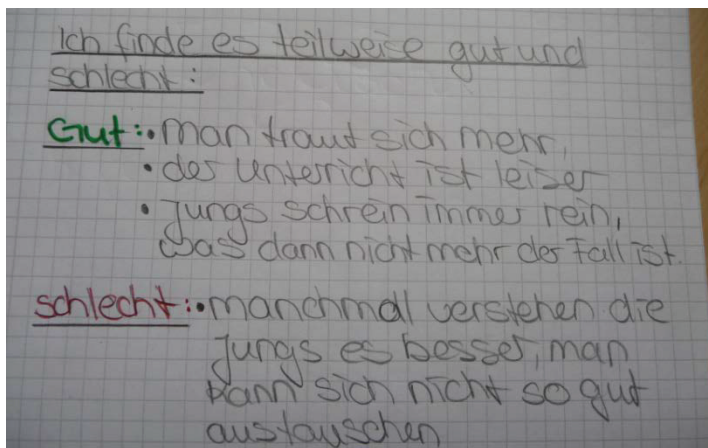 Ich finde es teilweise gut und
schlecht:
Gut: • man traut sich mehr,
• der Unterricht ist leiser
• Jungs schrein immer rein,
was dann nicht mehr der Fall ist.
schlecht: • manchmal verstehen die
Jungs es besser, man
kann sich nicht so gut
austauschen